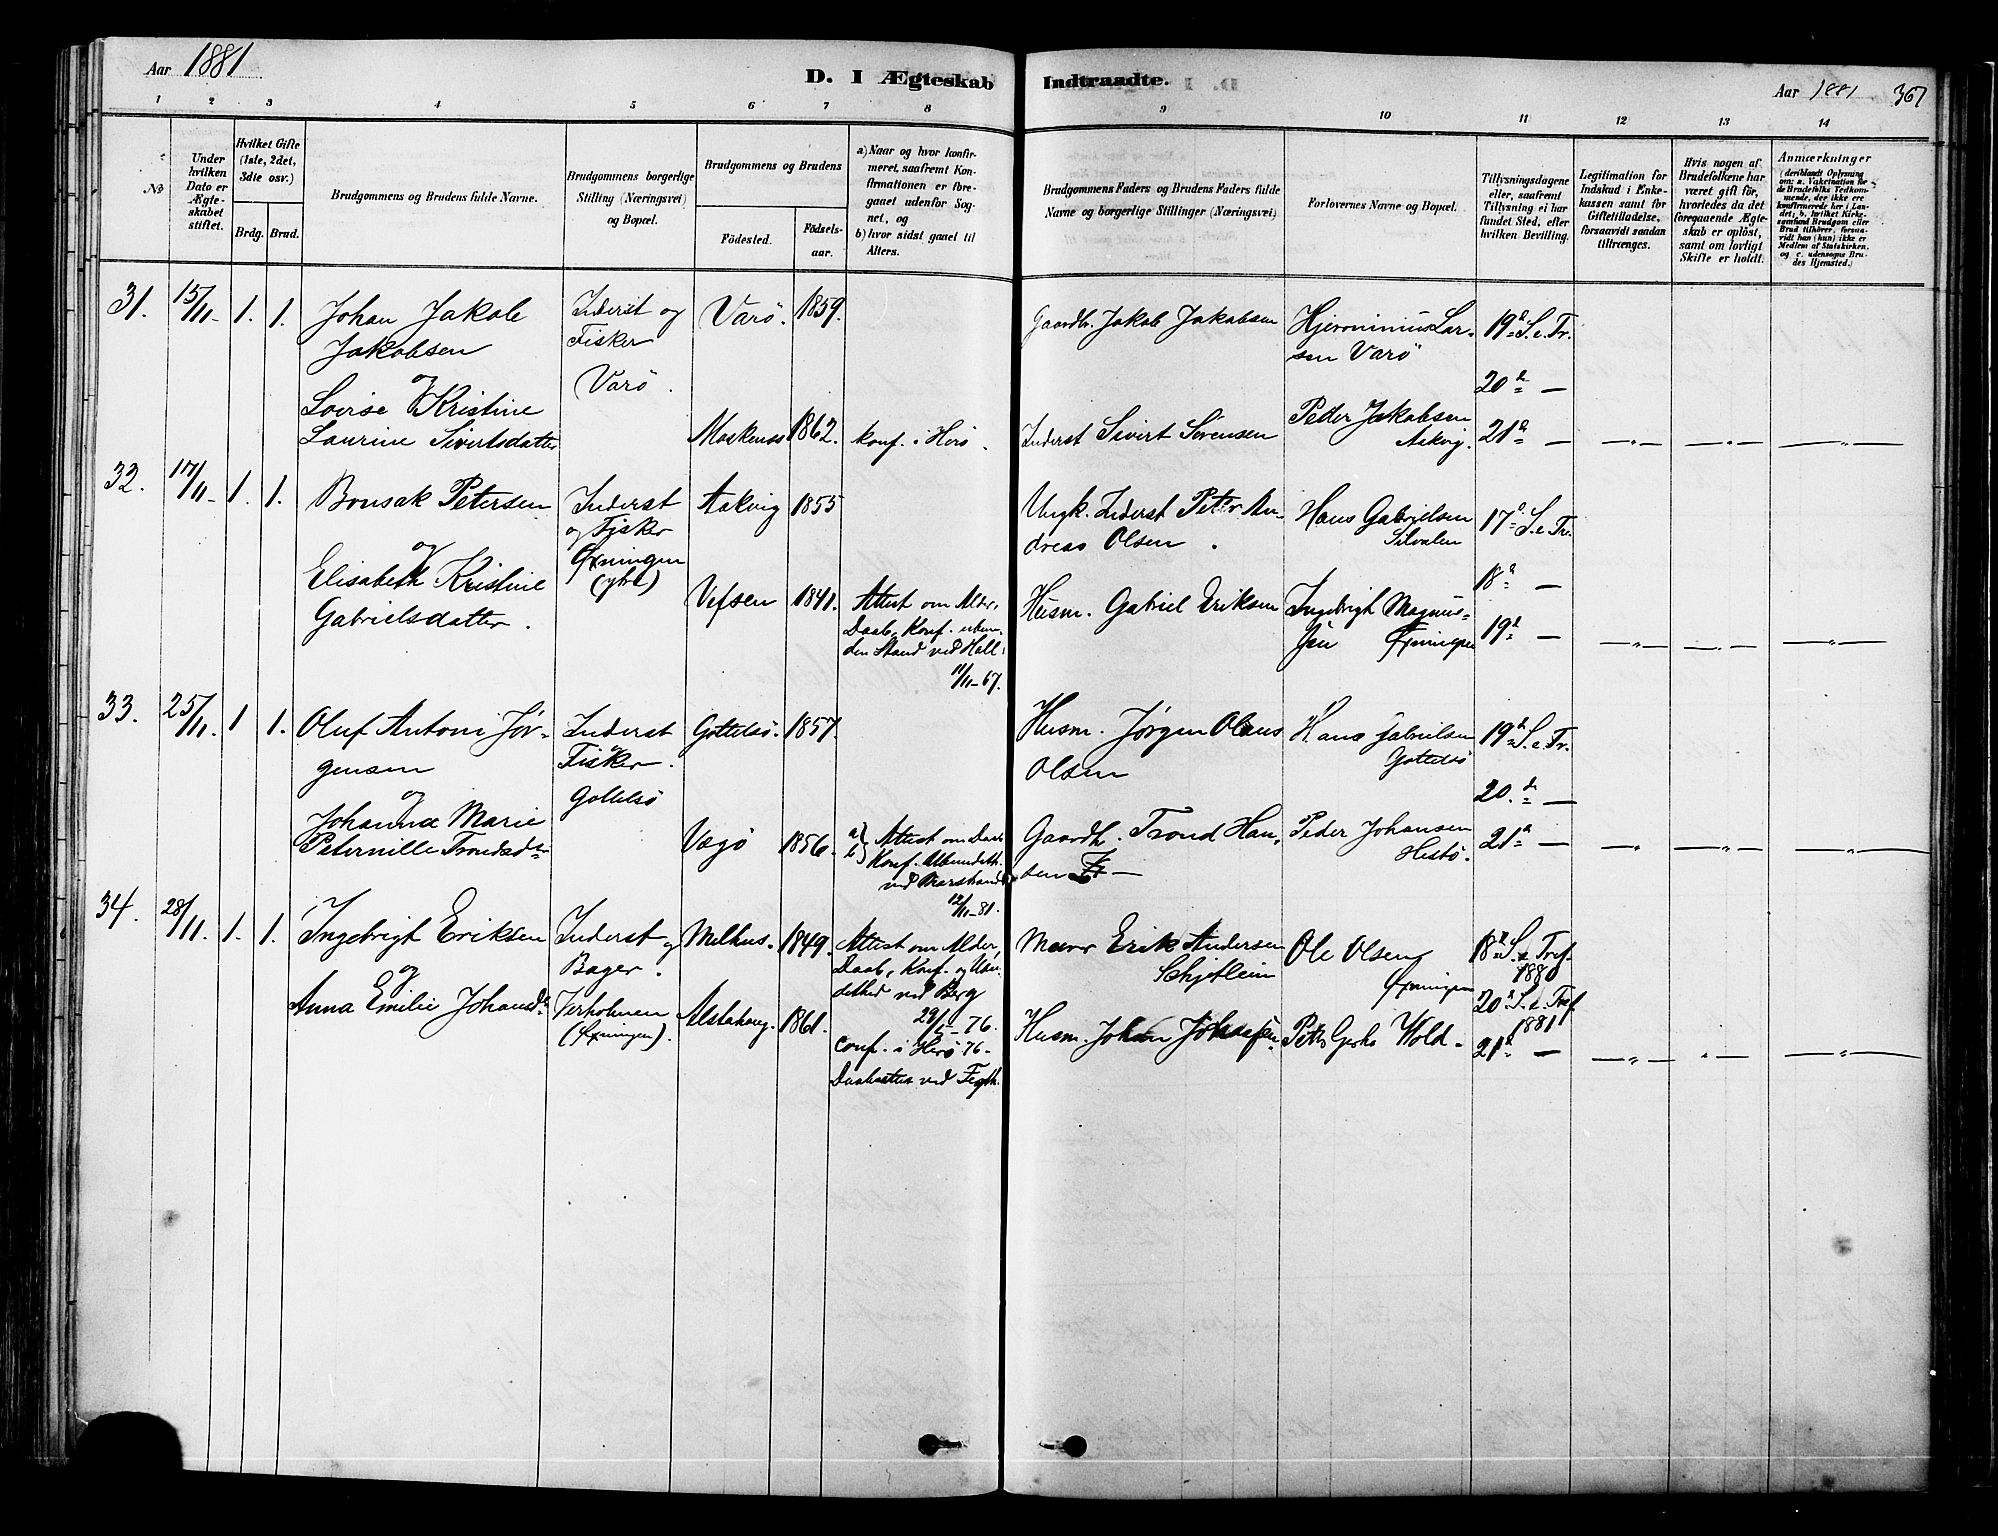 Aar 1881
D. I Ægteskab Indtraadte.
Aar 1881 367
1 2 3 4 5 6 7 8 9 10 11 12 13 14
No
Under hvilken Dato er Ægteskabet stiftet.
Hvilket Gifte (1ste, 2det, 3die osv.)
Brdg. Brud.
Brudgommens og Brudens fulde Navne.
Brudgommens borgerlige Stilling (Næringsvei) og Bopæl.
Brudgommens og Brudens
Födested.
Födselsaar.
a) Naar og hvor konfirmeret, saafremt Konfirmationen er foregaaet udenfor Sognet, og
b) hvor sidst gaaet til Alters.
Brudgommens Faders og Brudens Faders fulde Navne og borgerlige Stillinger (Næringsvei)
Forlovernes Navne og Bopæl.
Tillysningsdagene eller, saafremt Tillysning ei har fundet Sted, efter hvilken Bevilling.
Legitimation for Indskud i Enkekassen samt for Giftetilladelse, forsaavidt saadan tiltrænges.
Hvis nogen af Brudefolkene har været gift för, hvorledes da det foregaaende Ægteskab er oplöst, samt om lovligt Skifte er holdt.
Anmærkninger
(deriblandt Oplysning om: a. Vakcination for de Brudefolks Vedkommende, der ikke ere konfirmerede her i Landet; b. hvilket Kirkesamfund Brudgom eller Brud tilhörer, forsaavidt han (hun) ikke er Medlem af Statskirken, og c. udensogns Brudes Hjemsted.)
31. 15/11. 1. 1. Johan Jakob
Jakobsen
og
Lovise Kristine
Laurine Sivertsdatter
Inderst og
Fisker
Varö.
Varö. 1859.
Moskenes 1862. konf. i Herö.
Gaardbr. Jakob Jakobsen
Inderst Sivert Sörensen
Hjeronimus Larsen Varö
Peder Jakobsen
Aakvig.
19d S. e. Tr.
20d —
21d —
32. 17/11. 1. 1. Bonsak Petersen
og
Elisabeth Kristine
Gabrielsdatter.
Inderst
og Fisker
Öxningen
(ytre)
Aakvig 1855
Vefsen 1841. Attest om Alder,
Daab, Konf.
den Stand ved Hall
11/11–67.
Ungk. Inderst Peter Andreas Olsen.
Husm. Gabriel Eriksen
Hans Gabrielsen
Silvalen
Ingebrigt Magnus-
sen Öxningen
17d S. e. Tr.
18d —
19d —
33. 25/11. 1 1. Oluf Antoni Jör-
gensen
og
Johanna Marie
Peternille Trondsdr.
Inderst
Fisker.
Gottelsö
Gottelsö. 1857.
Vegö 1856. a) b) Attest om Daab
Konf.
ved
12/11–81.
Husm. Jörgen Olaus
Olsen
Gaardb. Trond Han-
sen
Hans Gabrielsen
Gottelsö
Peder Johansen
Hestö.
19d S. e. Tr.
20.d —
21d —
34. 28/11. 1. 1. Ingebrigt Eriksen
og
Anna Emilie Johansdr.
Inderst og
Bager.
Verholmen
(Öxningen).
Melhus. 1849. Attest om Alder,
Daab, Konf. og
ved Berg
29/5–76.
Alstahaug. 1861. Conf. i Herö 76.
Daabattest ved
Murer Erik Andersen
Husm. Johan Johansen.
Ole Olsen
Öxningen
Peter Wold.
18d S. e. Tref.
1880
20d S. e. Tref.
1881
21d —